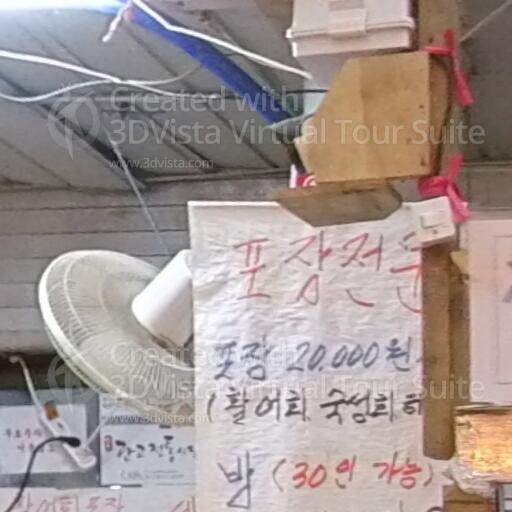 Created with
3DVista Virtual Tour Suite
www.3dvista.com
포장전문
포장 20.000원
(활어회 숙성회
밥 (30인 가능)
Created with
3DVista Virtual Tour Suite
www.3dvista.com